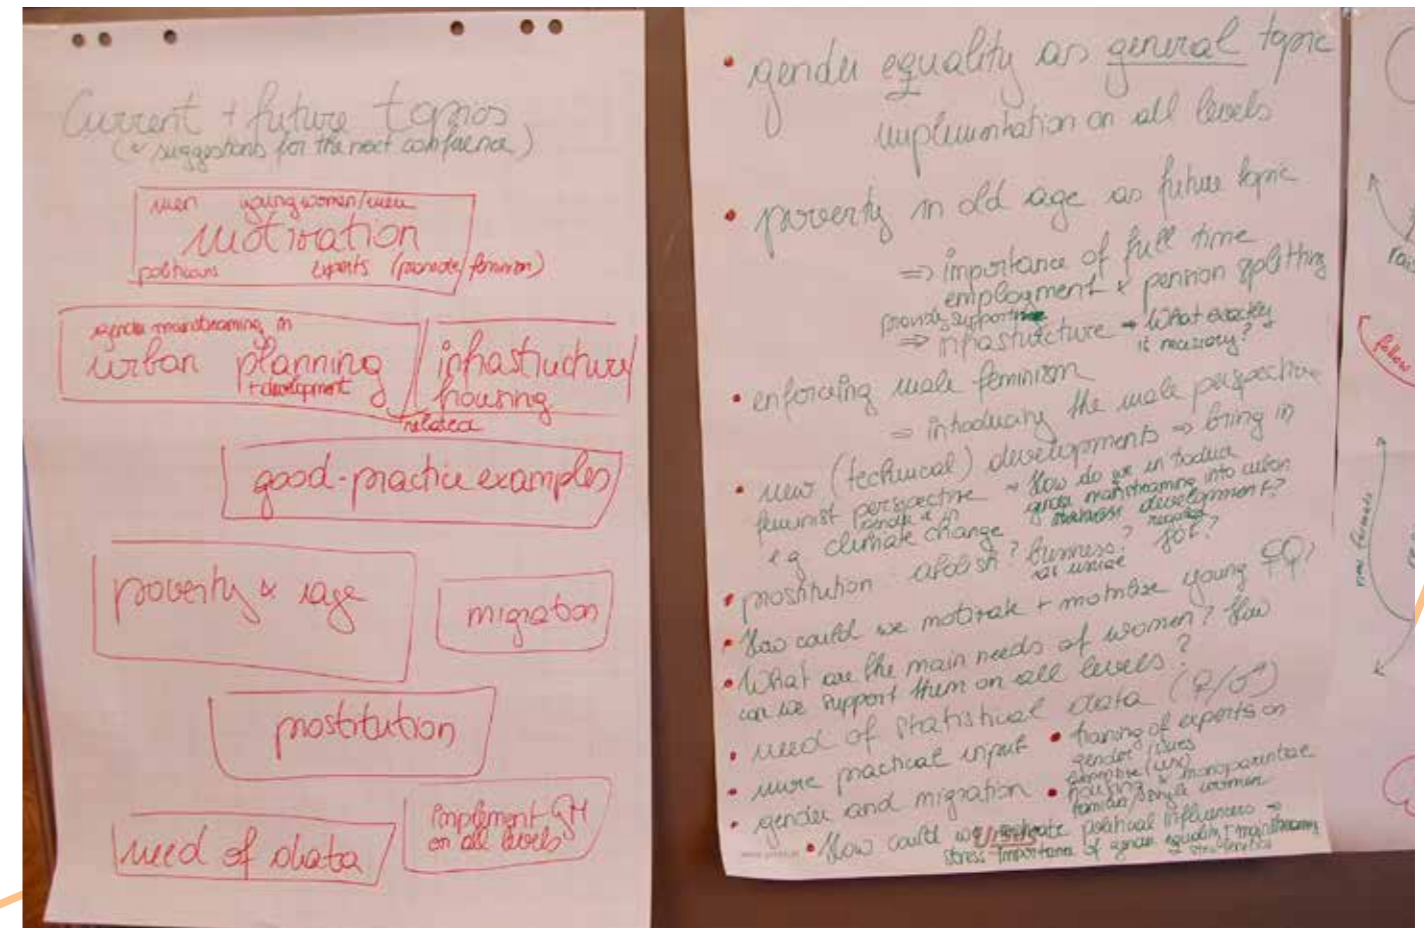 Current + future topics
(& suggestions for the next conference)
men young women/men
motivation
politicians experts (promote feminism)
gender mainstreaming in
urban planning
+ development
infrastructure/
housing
related
good-practice examples
poverty & age
migration
prostitution
need of data
implement GM
on all levels
• gender equality as general topic
implementation on all levels
• poverty in old age as future topic
⇒ importance of full time
employment & pension splitting
provide supporting
⇒ infrastructure → What exactly
is necessary?
• enforcing male feminism
⇒ introducing the male perspective
• new (technical) developments ⇒ bring in
feminist perspective → How do we introduce
gender mainstreaming into urban
development?
gender & in
e.g. climate change
• prostitution: abolish? business? job?
as usual regarded
• How could we motivate + mobilise young ♀♀?
• What are the main needs of women? How
can we support them on all levels?
• need of statistical data (♀/♂)
• more practical input
• training of experts on
gender issues
• gender and migration
• housing & monoparental
families/single women
• How could we political influencers →
stress importance of gender equality + mainstreaming
follow